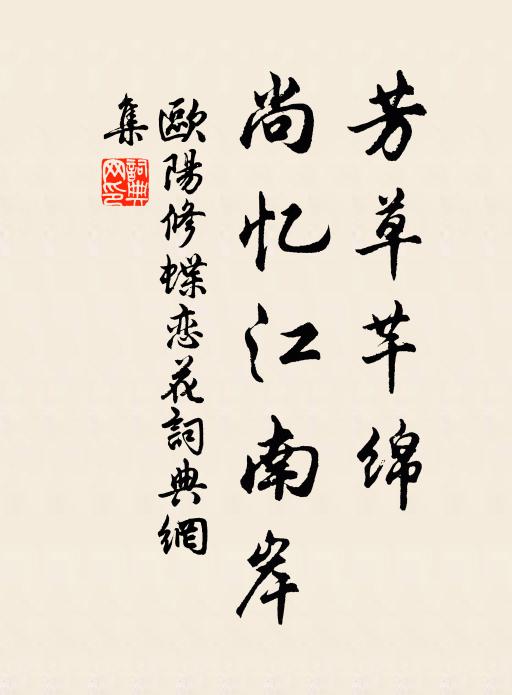 芳草芊绵
尚忆江南岸
歐陽修蝶恋花詞典網
集
詞典
网印